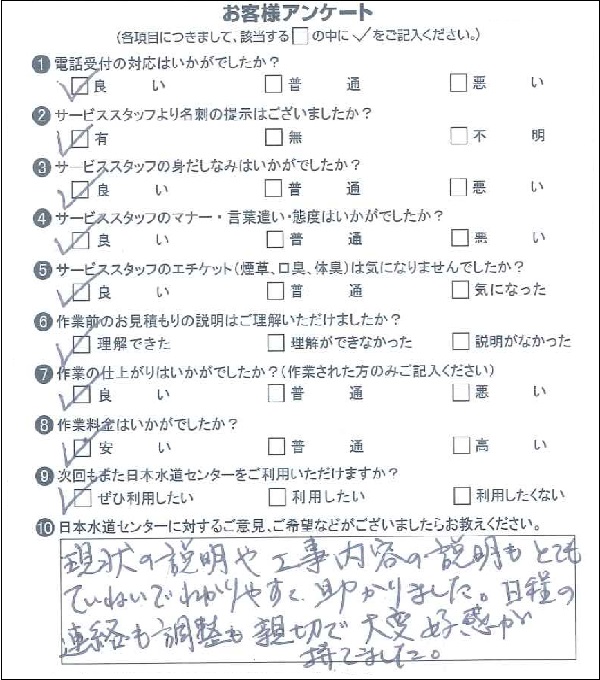 お客様アンケート
(各項目につきまして、該当する□の中に✓をご記入ください。)
❶ 電話受付の対応はいかがでしたか?
☑良い □普通 □悪い
❷ サービススタッフより名刺の提示はございましたか?
☑有 □無 □不明
❸ サービススタッフの身だしなみはいかがでしたか?
☑良い □普通 □悪い
❹ サービススタッフのマナー・言葉遣い・態度はいかがでしたか?
☑良い □普通 □悪い
❺ サービススタッフのエチケット(煙草、口臭、体臭)は気になりませんでしたか?
☑良い □普通 □気になった
❻ 作業前のお見積もりの説明はご理解いただけましたか?
☑理解できた □理解ができなかった □説明がなかった
❼ 作業の仕上がりはいかがでしたか?(作業された方のみご記入ください)
☑良い □普通 □悪い
❽ 作業料金はいかがでしたか?
☑安い □普通 □高い
❾ 次回もまた日本水道センターをご利用いただけますか?
☑ぜひ利用したい □利用したい □利用したくない
❿ 日本水道センターに対するご意見、ご希望などがございましたらお教えください。
現状の説明や工事内容の説明もとても
ていねいでわかりやすく、助かりました。日程の
連絡も調整も親切で大変好感が
持てました。